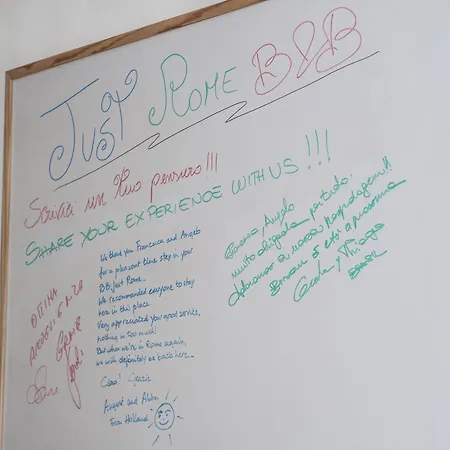 JUST ROME B&B
Scrivici un tuo pensiero!!!
SHARE YOUR EXPERIENCE WITH US!!!
We thank you Francesca and Angelo
for a pleasant time stay in your
BB, Just Rome...
We recommanded everyone to stay
here in this place.
Very appreciated your good service,
nothing is too much!
But when we're in Rome again,
we will definitely be back here...
Ciao! Grazie
August and
from Holland
Angelo
muito obrigada por tudo.
Adoramos a nossa hospedagem!!
até a próxima
OTTIMA